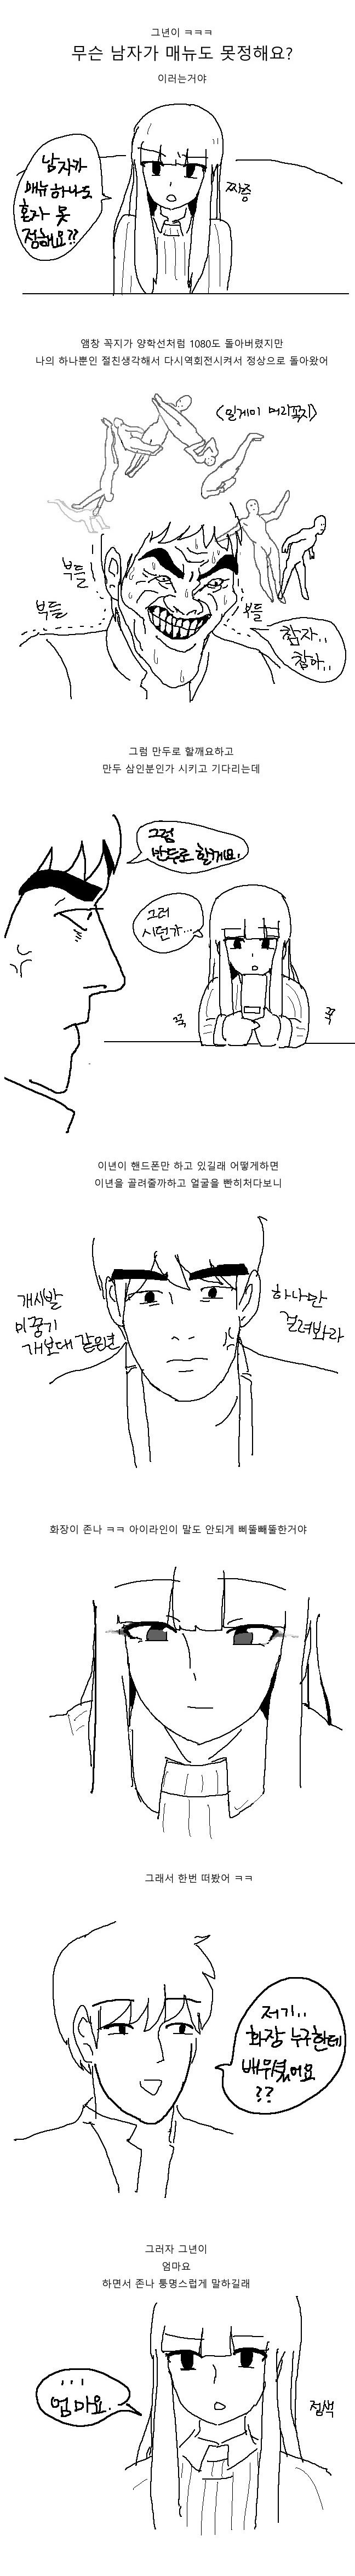 그년이 ㅋㅋㅋ
무슨 남자가 매뉴도 못정해요?
이러는거야
남자가
매뉴 하나도
혼자 못
정해요??
짜증
앰창 꼭지가 양학선처럼 1080도 돌아버렸지만
나의 하나뿐인 절친생각해서 다시역회전시켜서 정상으로 돌아왔어
(일게이 머리꼭지)
부들
부들
부들
참자..
참아..
그럼 만두로 할깨요하고
만두 삼인분인가 시키고 기다리는데
그럼
만두로 할게요.
그러
시던가...
꾹
꾹
이년이 핸드폰만 하고 있길래 어떻게하면
이년을 골려줄까하고 얼굴을 빤히처다보니
개씨발
미꿍기
개보대 같은년
하나만
걸려봐라
화장이 존나 ㅋㅋ 아이라인이 말도 안되게 삐뚤빼뚤한거야
그래서 한번 떠봤어 ㅋㅋ
저기..
화장 누구한테
배우셨어요
??
그러자 그년이
엄마요
하면서 존나 퉁명스럽게 말하길래
...
엄마요.
정색